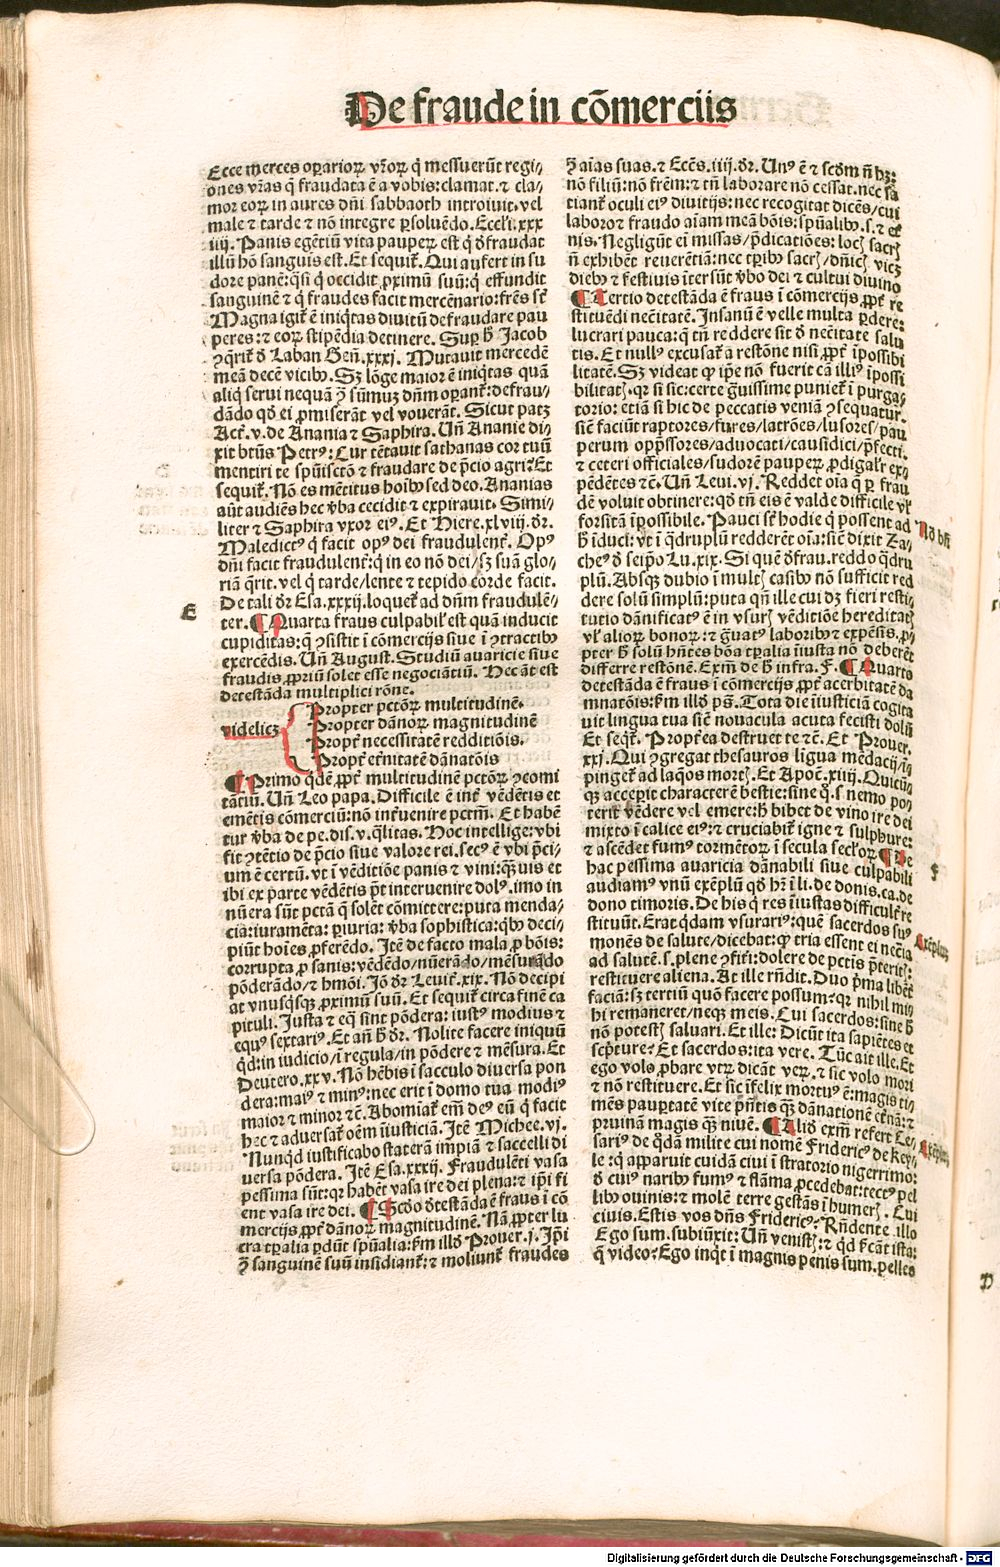 De fraude in cõmerciis
Ecce merces oꝑarioꝝ vr̃oꝝ q̇ messuerũt regi⸗
ones vr̃as q̃ fraudata ẽ a vobis: clamat. ⁊ cla⸗
mor eoꝝ in aures dñi sabbaoth introiuit. vel
male ⁊ tarde ⁊ nõ integre ꝑsoluẽdo. Eccl'i. xxx
iiij. Panis egẽtiũ vita pauperꝝ est q̇ ð̃fraudat
illũ hõ sanguis est. Et sequit᷑. Qui aufert in su
dore panẽ: q̃si q̇ occidit ꝓximũ suũ: q̇ effundit
sanguinẽ ⁊ q̇ fraudes facit mercẽnario: fr̃es st̃
Magna igit᷑ ẽ iniq̇tas diuitũ defraudare pau
peres: ⁊ eoꝝ stipẽdia detinere. Suꝑ ħ Jacob
ꝯq̃rit᷑ ð̃ Laban Geñ. xxxj. Mutauit mercedẽ
meã decẽ vicibꝰ. Sꝫ lõge maior ẽ iniq̇tas quã
aliq̇ serui nequã ꝯ̃ sũmuꝫ dñm oꝑant᷑: defrau⸗
dãdo qð ei ꝓmiserãt vel vouerãt. Sicut patꝫ
Act᷑. v. de Anania ⁊ Saphira. Uñ Ananie di⸗
xit btũs Petrꝰ: Cur tẽtauit sathanas cor tuũ
mentiri te sp̃uisctõ ⁊ fraudare de p̃cio agri? Et
sequit᷑. Nõ es mẽtitus hoĩbꝰ sed deo. Ananias
aũt audiẽs hec v̾ba cecidit ⁊ expirauit. Simi⸗
liter ⁊ Saphira vxor eiꝰ. Et Hiere. xlviij. ðr.
Maledictꝰ q̇ facit opꝰ dei fraudulent᷑. Opꝰ
dñi facit fraudulent᷑: q̇ in eo nõ dei/ sꝫ suã glo⸗
riã q̃rit. vel q̇ tarde/ lente ⁊ tepido corde facit.
E
De tali ðr Esa. xxxij. loquet᷑ ad dñm fraudulẽ⸗
ter. ¶ Quarta fraus culpabil' est quã inducit
cupiditas: q̃ ꝯsistit ĩ cõmercijs siue ĩ ꝯtractibꝰ
exercẽdis. Uñ August. Studiũ auaricie siue
fraudis ꝓpriũ solet esse negociatiũ. Hec aũt est
detestãda multiplici rõne.
videlicꝫ
Propter pctõꝝ multitudinẽ.
Propter dãnoꝝ magnitudinẽ
Propt᷑ necessitatẽ redditiõis.
Propt᷑ et̾nitatẽ dãnatõis
¶ Primo q̇dẽ ꝓpt᷑ multitudinẽ pctõꝝ ꝯcomi
tãtiũ. Uñ Leo papa. Difficile ẽ int᷑ vẽdẽtis et
emẽtis cõmerciũ: nõ int᷑uenire pctm̃. Et habẽ
tur v̾ba de pe. dis. v. q̃litas. Hoc intellige: vbi
fit ꝯtẽtio de p̃cio siue valore rei. secꝰ ẽ vbi p̃ci⸗
um ẽ certũ. vt ĩ vẽditiõe panis ⁊ vini: q̃ꝫuis et
ibi ex parte vẽdẽtis p̃t interuenire dolꝰ. imo in
nũera sũt pctã q̃ solẽt cõmittere: puta menda⸗
cia: iuramẽta: ꝑiuria: v̾ba sophistica: q̇bꝰ deci⸗
piũt hoĩes ꝓferẽdo. Itẽ de facto mala ꝓ bõis:
corrupta ꝓ sanis: vẽdẽdo/ nũerãdo/ mẽsurãdo
põderãdo/ ⁊ hmõi. Jõ ðr Leuit᷑. xix. Nõ decipi
at vnusq̇sqꝫ ꝓximũ suũ. Et sequit᷑ circa finẽ ca
pituli. Justa ⁊ eq̃ sint põdera: iustꝰ modius ⁊
equꝰ sextariꝰ. Et añ ħ ðr. Nolite facere iniquũ
q̇d: in iudicio/ ĩ regula/ in põdere ⁊ mẽsura. Et
Deutero. xxv. Nõ hẽbis ĩ sacculo diuersa pon
dera: maiꝰ ⁊ minꝰ: nec erit ĩ domo tua modiꝰ
maior ⁊ minor ⁊ẽ. Abomiat᷑ em̃ deꝰ eũ q̇ facit
hec ⁊ aduersat᷑ oẽm ĩiusticiã. Itẽ Michee. vj.
Nunq̇d iustificabo staterã impiã ⁊ saccelli di
uersa põdera. Itẽ Esa. xxxij. Fraudulẽti vasa
pessima sũt: qꝛ habẽt vasa ire dei plena: ⁊ ip̃i fi
ent vasa ire dei. ¶ Scðo ð̃testãda ẽ fraus ĩ cõ
mercijs ꝓpt᷑ dãnoꝝ magnitudinẽ. Nã ꝓpter lu
cra tꝑalia ꝑdũt sp̃ualia: ẜm illð Prouer. j. Jp̃i
ꝯ̃ sanguinẽ suũ insidiant᷑: ⁊ moliunt᷑ fraudes
ꝯ̃ aĩas suas. ⁊ Ecc̃s. iiij. ðr. Unꝰ ẽ ⁊ scðm ñ hꝫ:
nõ filiũ: nõ fr̃em: ⁊ tñ laborare nõ cessat. nec sa
tiant᷑ oculi eiꝰ diuitijs: nec recogitat dicẽs/ cui
laboro ⁊ fraudo aĩam meã bõis: sp̃ualibꝰ. s. ⁊ et̾
nis. Negligũt ei missas/ p̃dicatiões: locꝭ sacrꝭ
ñ exhibẽt reuerẽtiã: nec tꝑibꝰ sacrꝭ/ dñicꝭ vicꝫ
diebꝰ ⁊ festiuis ĩtersũt v̾bo dei ⁊ cultui diuino
¶ Tertio detestãda ẽ fraus ĩ cõmercijs ꝓpt᷑ re
stituẽdi nec̃itatẽ. Insanũ ẽ velle multa ꝑdere:
lucrari pauca: q̃ tñ reddere sit ð̃ nec̃itate salu
tis. Et nullꝰ excusat᷑ a rest̃õne nisi ꝓpt᷑ ĩpossibi
litatẽ. Sꝫ videat ꝙ ip̃e nõ fuerit cã illiꝰ ĩpossi
bilitatꝭ. qꝛ si sic: certe g̃uissime puniet᷑ ĩ purga⸗
torio: etiã si hic de peccatis veniã ꝯsequatur.
sic̃ faciũt raptores/ fures/ latrões/ lusores/ pau
perum opp̃ssores/ aduocati/ causidici/ p̃fecti.
⁊ ceteri officiales/ sudorẽ pauperꝝ ꝓdigal'r ex⸗
pẽdẽtes ⁊ẽ. Uñ Leui. vj. Reddet oĩa q̃ ꝑ frau
dẽ voluit obtinere: qð tñ eis ẽ valde difficile vl'
forsitã ĩpossibile. Pauci st̃ hodie q̇ possent ad
Nõ bñ
ħ ĩduci: vt ĩ q̃druplũ redderẽt oĩa: sic̃ dixit Za⸗
cheꝰ ð̃ seip̃o Lu. xix. Si quẽ ð̃frau. reddo q̃dru
plũ. Absqꝫ dubio ĩ multꝭ casibꝰ nõ sufficit red
dere solũ simplũ: puta qñ ille cui dꝫ fieri resti⸗
tutio dãnificat᷑ ẽ in vsurꝭ vẽditiõe hereditatꝭ
vl' alioꝝ bonoꝝ: ⁊ g̃uatꝰ laboribꝰ ⁊ expẽsis. ꝓ⸗
pter ħ solũ hñtes bõa tꝑalia ĩiusta nõ deberẽt
differre rest̃õnẽ. Exm̃ de ħ infra. F. ¶ Quarto
detestãda ẽ fraus ĩ cõmercijs ꝓpt᷑ acerbitatẽ dã
mnatõis: ẜm illð ps̃. Tota die ĩiusticiã cogita
uit lingua tua sic̃ nouacula acuta fecisti dolũ
Et seqt᷑. Propt᷑ ea destruet te ⁊ẽ. Et Prouer.
xxj. Qui ꝯgregat thesauros lĩgua mẽdacij/ ĩ⸗
pinget᷑ ad laq̃os mortꝭ. Et Apoc̃. xiiij. Quicũ⸗
qꝫ acceꝑit characterẽ bestie: sine q̃. s. nemo po⸗
terit vẽdere vel emere: ħ bibet de vino ire dei
mixto ĩ calice eiꝰ: ⁊ cruciabit᷑ igne ⁊ sulphure:
⁊ ascẽdet fumꝰ tormẽtoꝝ ĩ secula secl'oꝝ. ¶ De
F
hac pessima auaricia dãnabili siue culpabili
audiamꝰ vnũ exẽplũ qð hr̃ ĩ li. de donis. ca. de
dono timoris. De his q̇ res ĩiustas difficult᷑ re
stituũt. Erat q̇dam vsurariꝰ: quẽ sacerdos suꝰ
Exẽplũ
monẽs de salute/ dicebat: ꝙ tria essent ei nec̃ia
ad salutẽ. s. plene ꝯfiti: dolere de pctĩs p̃teritꝭ:
restituere aliena. At ille rñdit. Duo p̃ma libẽt᷑
faciã: sꝫ tertiũ quõ facere possum? qꝛ nihil mi⸗
hi remaneret/ neqꝫ meis. Cui sacerdos: sine ħ
nõ potestꝭ saluari. Et ille: Dicũt ita sapiẽtes et
sc̃pture? Et sacerdos: ita vere. Tũc ait ille. Et
ego volo ꝓbare vtꝝ dicãt veꝝ. ⁊ sic volo mori
⁊ nõ restituere. Et sic ĩfelix mortuꝰ ẽ: magis ti⸗
mẽs pauꝑtatẽ vite p̃ñtis qꝫ dãnationẽ et̾nã: ⁊
pruinã magis qꝫ niuẽ. ¶ Aliõ exm̃ refert Ce⸗
Exẽplũ
sariꝰ de q̇dã milite cui nomẽ Fridericꝰ de Key⸗
le: q̇ apparuit cuidã ciui ĩ stratorio nigerrimo:
ð̃ cuiꝰ naribꝰ fumꝰ ⁊ flãma ꝓcedebat: tectꝰ pel
libꝰ ouinis: ⁊ molẽ terre gestãs ĩ humerꝭ. Cui
ciuis. Estis vos dñs Fridericꝰ? Rñdente illo
Ego sum. subiũxit: Uñ venistꝭ: ⁊ q̇d sig̃cãt ista:
q̃ video? Ego inqt᷑ ĩ magnis penis sum. pelles
Digitalisierung gefördert durch die Deutsche Forschungsgemeinschaft - DFG